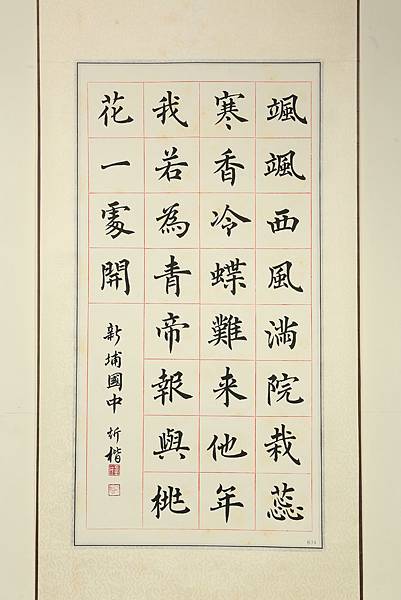 颯颯西風滿院栽蕊
寒香冷蝶難来他年
我若為青帝報與桃
花一處開
新埔國中 楷